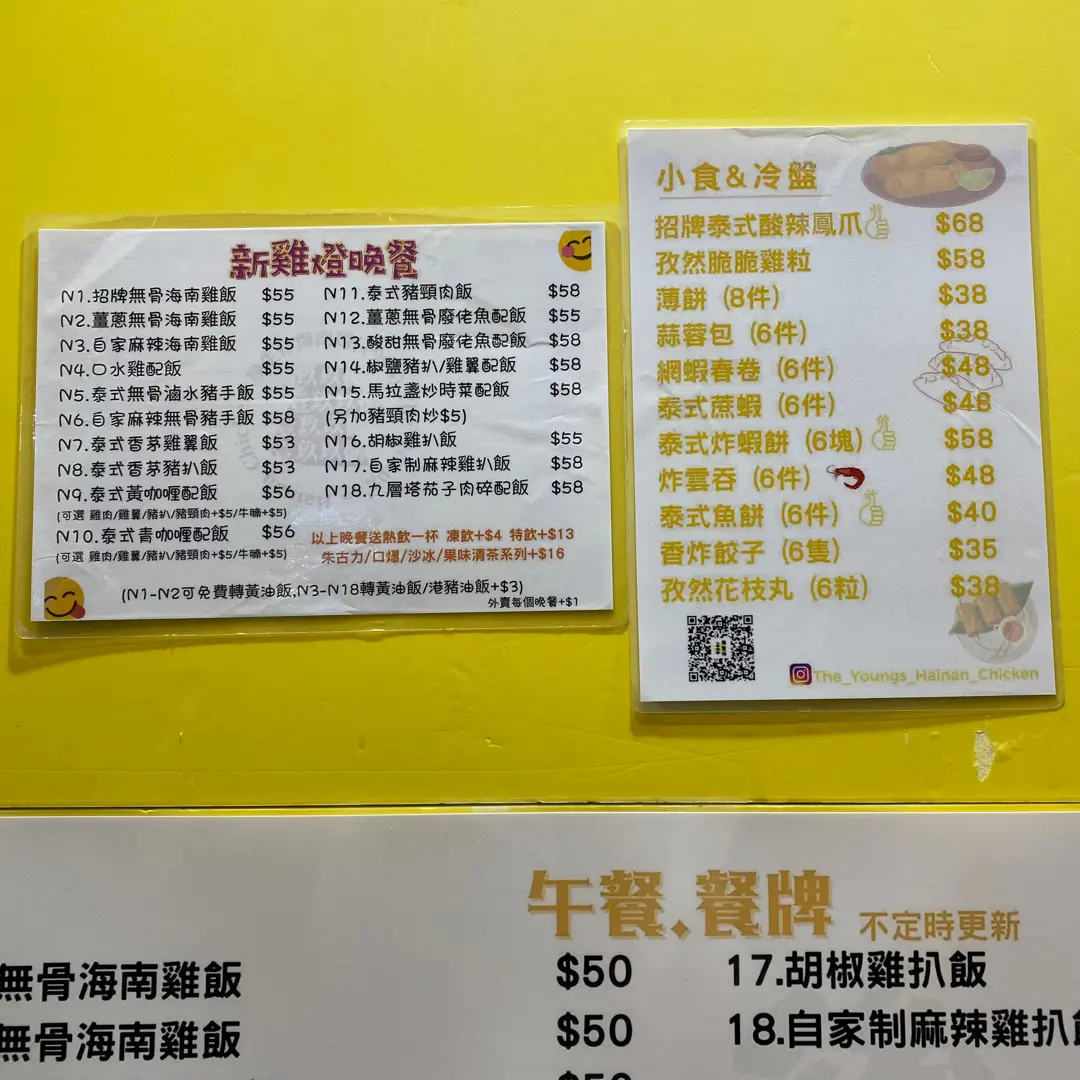 新雞燈晚餐
N1.招牌無骨海南雞飯 $55
N2.薑蔥無骨海南雞飯 $55
N3.自家麻辣海南雞飯 $55
N4.口水雞配飯 $55
N5.泰式無骨滷水豬手飯 $55
N6.自家麻辣無骨豬手飯 $58
N7.泰式香茅雞翼飯 $53
N8.泰式香茅豬扒飯 $53
N9.泰式黃咖喱配飯 $56
(可選 雞肉/雞翼/豬扒/豬頸肉+$5/牛腩+$5)
N10.泰式青咖喱配飯 $56
(可選 雞肉/雞翼/豬扒/豬頸肉+$5/牛腩+$5)
N11.泰式豬頸肉飯 $58
N12.薑蔥無骨廢佬魚配飯 $55
N13.酸甜無骨廢佬魚配飯 $58
N14.椒鹽豬扒/雞翼配飯 $58
N15.馬拉盞炒時菜配飯 $58
(另加豬頸肉炒$5)
N16.胡椒雞扒飯 $55
N17.自家制麻辣雞扒飯 $58
N18.九層塔茄子肉碎配飯 $58
以上晚餐送熱飲一杯 凍飲+$4 特飲+$13
朱古力/口爆/沙冰/果味清茶系列+$16
(N1-N2可免費轉黃油飯,N3-N18轉黃油飯/港豬油飯+$3)
外賣每個晚餐+$1
小食&冷盤
招牌泰式酸辣鳳爪 $68
孜然脆脆雞粒 $58
薄餅 (8件) $38
蒜蓉包 (6件) $38
網蝦春卷 (6件) $48
泰式蔗蝦 (6件) $48
泰式炸蝦餅 (6塊) $58
炸雲吞 (6件) $48
泰式魚餅 (6件) $40
香炸餃子 (6隻) $35
孜然花枝丸 (6粒) $38
The_Youngs_Hainan_Chicken
午餐.餐牌 不定時更新
無骨海南雞飯 $50 17.胡椒雞扒飯
無骨海南雞飯 $50 18.自家制麻辣雞扒